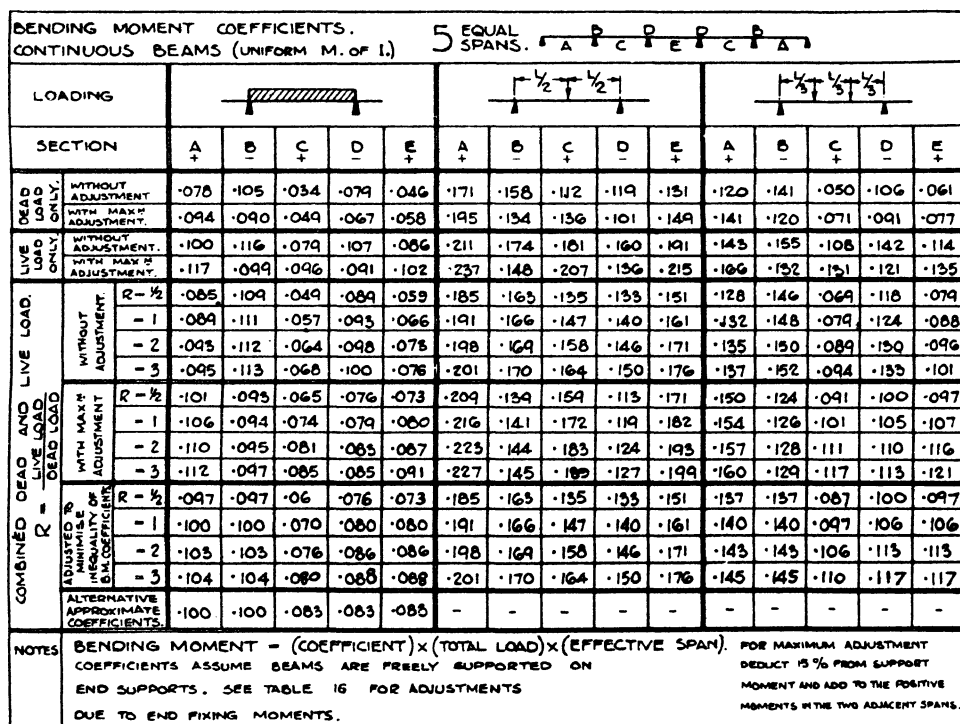 BENDING MOMENT COEFFICIENTS.
CONTINUOUS BEAMS (UNIFORM M. OF I.)
5 EQUAL SPANS. A B C D E D C B A
LOADING L/2 L/2 L/3 L/3 L/3
SECTION A + B - C + D - E + A + B - C + D - E + A + B - C + D - E +
DEAD LOAD ONLY. WITHOUT ADJUSTMENT ·078 ·105 ·034 ·079 ·046 ·171 ·158 ·112 ·119 ·131 ·120 ·141 ·050 ·106 ·061
WITH MAXM ADJUSTMENT. ·094 ·090 ·049 ·067 ·058 ·195 ·134 ·136 ·101 ·149 ·141 ·120 ·071 ·091 ·077
LIVE LOAD ONLY. WITHOUT ADJUSTMENT. ·100 ·116 ·079 ·107 ·086 ·211 ·174 ·181 ·160 ·191 ·143 ·155 ·108 ·142 ·114
WITH MAXM ADJUSTMENT. ·117 ·099 ·096 ·091 ·102 ·237 ·148 ·207 ·136 ·215 ·166 ·132 ·131 ·121 ·135
COMBINED DEAD AND LIVE LOAD. R = LIVE LOAD / DEAD LOAD
WITHOUT ADJUSTMENT. R = ½ ·085 ·109 ·049 ·089 ·059 ·185 ·163 ·135 ·133 ·151 ·128 ·146 ·069 ·118 ·079
= 1 ·089 ·111 ·057 ·093 ·066 ·191 ·166 ·147 ·140 ·161 ·132 ·148 ·079 ·124 ·088
= 2 ·093 ·112 ·064 ·098 ·073 ·198 ·169 ·158 ·146 ·171 ·135 ·150 ·089 ·130 ·096
= 3 ·095 ·113 ·068 ·100 ·076 ·201 ·170 ·164 ·150 ·176 ·137 ·152 ·094 ·133 ·101
WITH MAXM ADJUSTMENT R = ½ ·101 ·093 ·065 ·076 ·073 ·209 ·139 ·159 ·113 ·171 ·150 ·124 ·091 ·100 ·097
= 1 ·106 ·094 ·074 ·079 ·080 ·216 ·141 ·172 ·119 ·182 ·154 ·126 ·101 ·105 ·107
= 2 ·110 ·095 ·081 ·083 ·087 ·223 ·144 ·183 ·124 ·193 ·157 ·128 ·111 ·110 ·116
= 3 ·112 ·097 ·085 ·085 ·091 ·227 ·145 ·189 ·127 ·199 ·160 ·129 ·117 ·113 ·121
ADJUSTED TO MINIMISE INEQUALITY OF B.M. COEFFICIENTS R = ½ ·097 ·097 ·06 ·076 ·073 ·185 ·163 ·135 ·133 ·151 ·137 ·137 ·087 ·100 ·097
= 1 ·100 ·100 ·070 ·080 ·080 ·191 ·166 ·147 ·140 ·161 ·140 ·140 ·097 ·106 ·106
= 2 ·103 ·103 ·076 ·086 ·086 ·198 ·169 ·158 ·146 ·171 ·143 ·143 ·106 ·113 ·113
= 3 ·104 ·104 ·080 ·088 ·088 ·201 ·170 ·164 ·150 ·176 ·145 ·145 ·110 ·117 ·117
ALTERNATIVE APPROXIMATE COEFFICIENTS. ·100 ·100 ·083 ·083 ·083 - - - - - - - - - -
NOTES BENDING MOMENT = (COEFFICIENT) x (TOTAL LOAD) x (EFFECTIVE SPAN).
COEFFICIENTS ASSUME BEAMS ARE FREELY SUPPORTED ON
END SUPPORTS. SEE TABLE 16 FOR ADJUSTMENTS
DUE TO END FIXING MOMENTS.
FOR MAXIMUM ADJUSTMENT
DEDUCT 15 % FROM SUPPORT
MOMENT AND ADD TO THE POSITIVE
MOMENTS IN THE TWO ADJACENT SPANS.